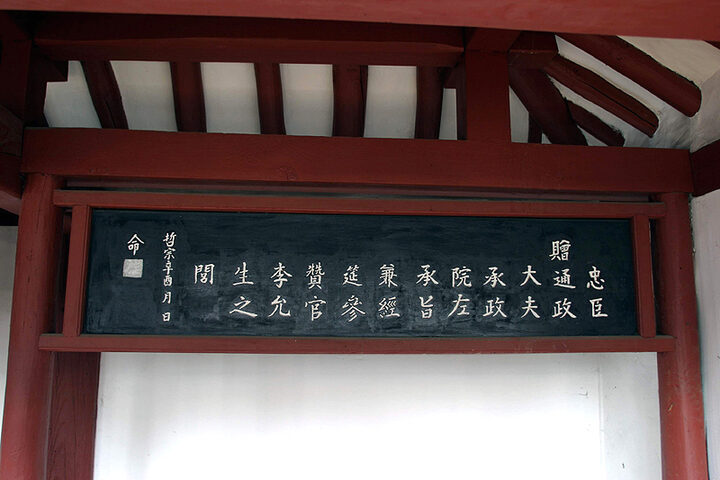 忠臣
贈通政
大夫
承政
院左
承旨
兼經
筵參
贊官
李允
生之
閭
哲宗辛酉 月 日
命